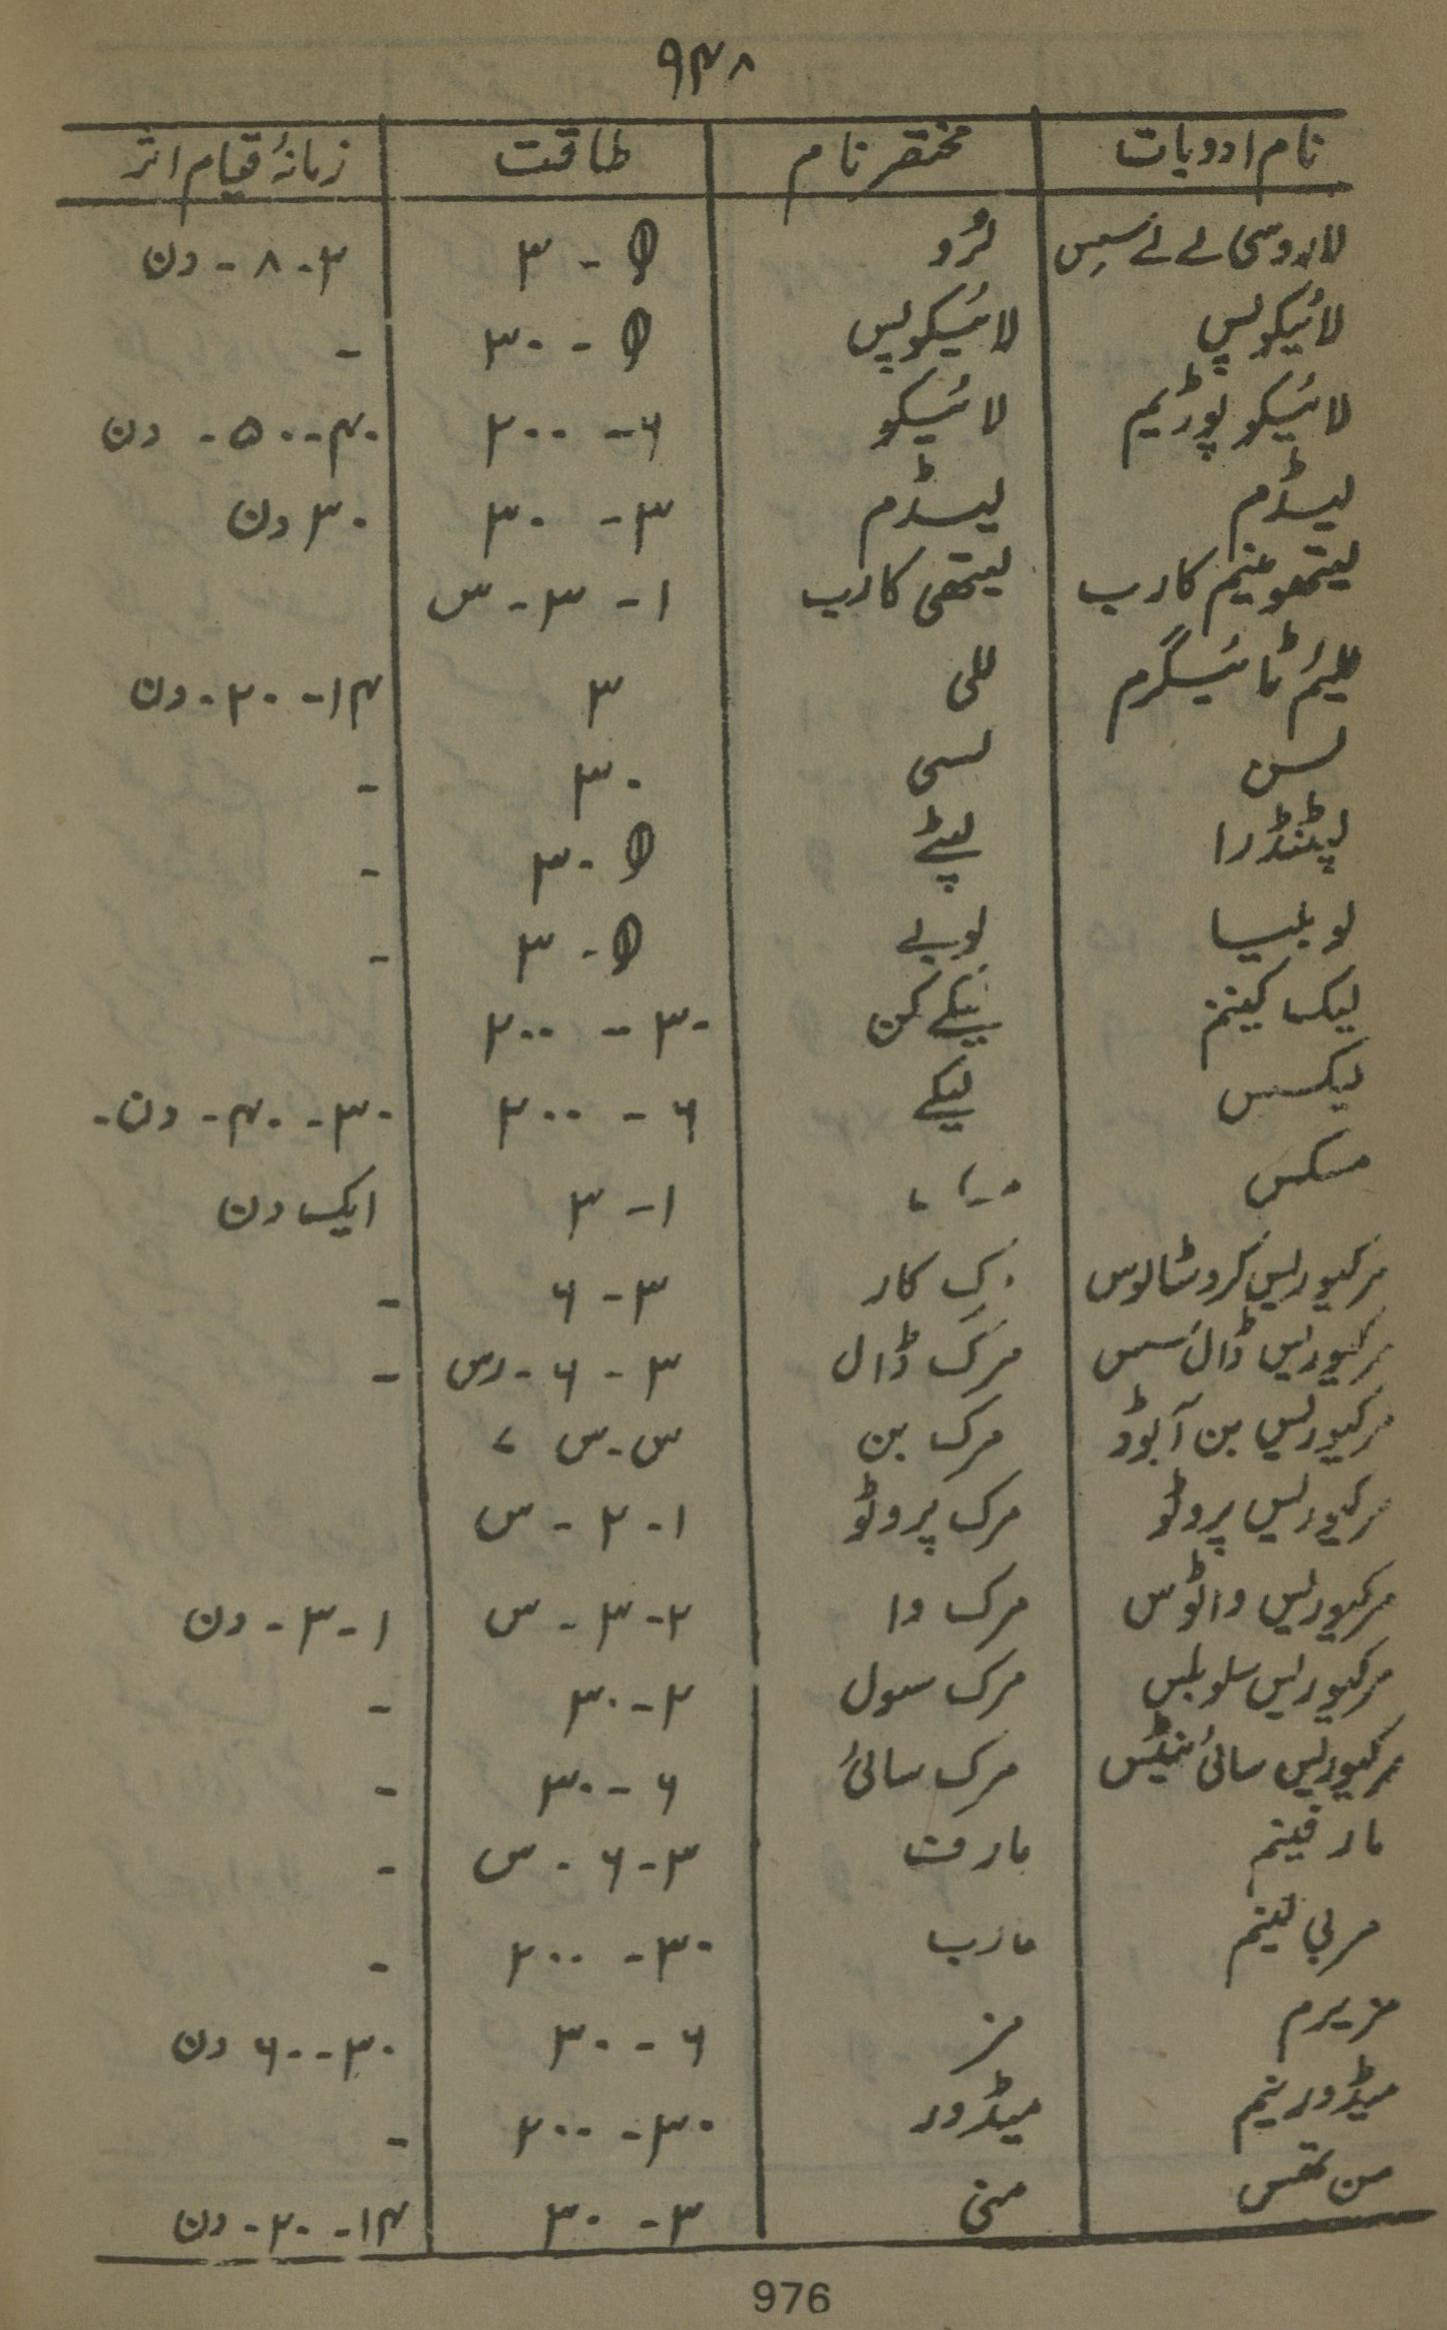 ۹۴۸
نام ادویات مختصر نام طاقت زمانۂ قیام اثر
لاروسی لے ئے سیس لرُو θ - ۳ ۴ - ۸ - دن
لائیکوپس لائیکوپس θ - ۳۰ -
لائیکو پوڈیم لائیکو ۶ - ۲۰۰ ۴۰ - ۵۰ - دن
لیڈم لیڈم ۳ - ۳۰ ۳۰ دن
لیتھونیم کارب لیتھی کارب ۱ - ۳ - س
للیئم ٹائیگرم للی ۳ ۱۴ - ۲۰ - دن
لسن لسی ۳۰ -
لپٹنڈرا لپٹے θ - ۳ -
لوبلیا لوبے θ - ۳ -
لیک کینم لیکے کن ۳۰ - ۲۰۰
لیکسس لیکے ۶ - ۲۰۰ ۳۰ - ۴۰ - دن -
مسکس ۱ - ۳ ایک دن
مرکیوریس کروٹالوس ک کار ۳ - ۶ -
مرکیوریس ڈالسس مرک ڈال ۳ - ۶ - رس -
مرکیوریس بن آیوڈ مرک بن س - س ۷
مرکیوریس پروٹو مرک پروٹو ۱ - ۲ - س
مرکیوریس وائوس مرک وا ۲ - ۳ - س ۱ - ۳ - دن
مرکیوریس سلوبلس مرک سول ۲ - ۳۰ -
مرکیوریس سائینٹیس مرک سائی ۶ - ۳۰ -
مارفینم مارف ۳ - ۶ - س -
مربی لینم مارب ۳۰ - ۲۰۰ -
مزیرم مز ۶ - ۳۰ ۳۰ - ۶۰ دن
میڈورینم میڈور ۳۰ - ۲۰۰ -
من تھس منی ۳ - ۳۰ ۱۴ - ۲۰ - دن
976